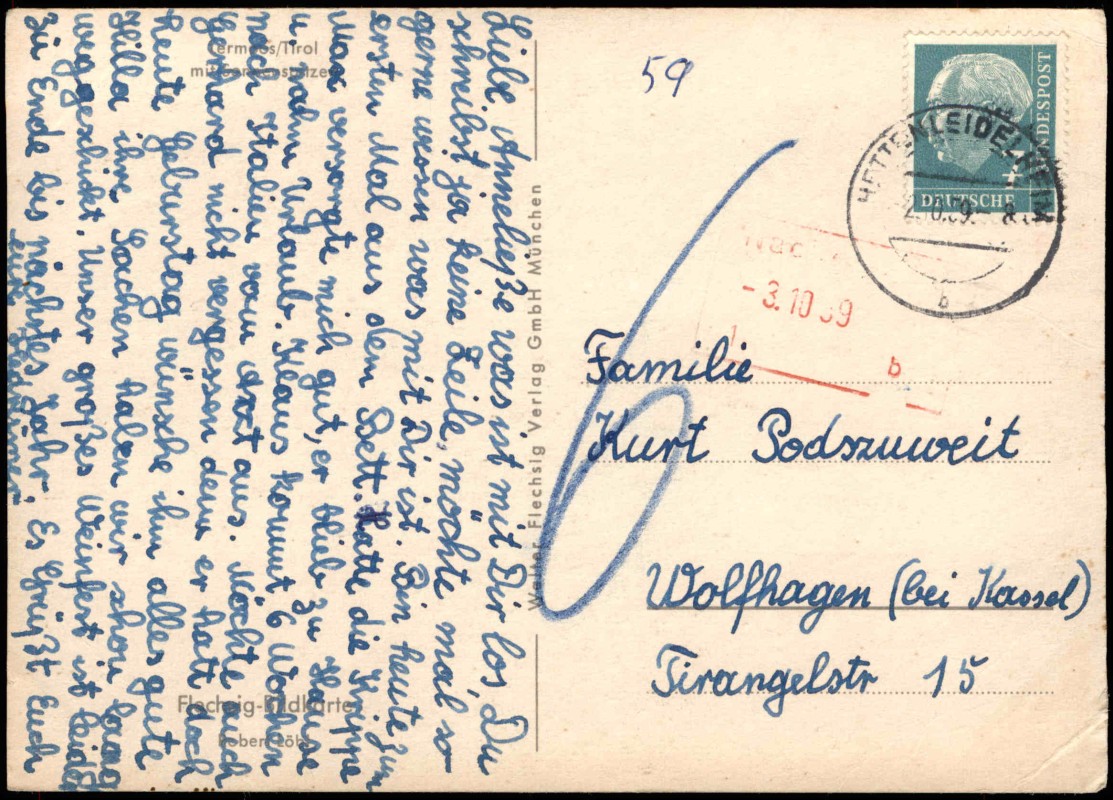 Liebe Anneließe was ist mit Dir los, Du
schreibst ja keine Zeile, möchte mal so
gerne wissen was mit Dir ist. Bin heute zum
ersten Mal aus dem Bett. Hatte die Grippe
Max versorgte mich gut, er blieb zu Hause
u. nahm Urlaub. Klaus kommt 6 Wochen
nach Italien von dort aus. Möchte auch
Gerhard nicht vergessen denn er hatt doch
Heute Geburstag wünsche ihm alles gute
Hilla ihre Sachen haben wir schon lang
weggeschickt. Unser großes Weinfest ist leider
zu Ende bis nächstes Jahr. Es Grüßt Euch
Lermoos/Tirol
mit Sonnenspitze
Flechsig-Bildkarte
Robert Löbl
Walter Flechsig Verlag GmbH München
59
6
DEUTSCHE BUNDESPOST
HETTENLEIDELHEIM
2.10.59.-8
b
-3.10.59
b
Familie
Kurt Podszuweit
Wolfhagen (bei Kassel)
Tirangelstr 15